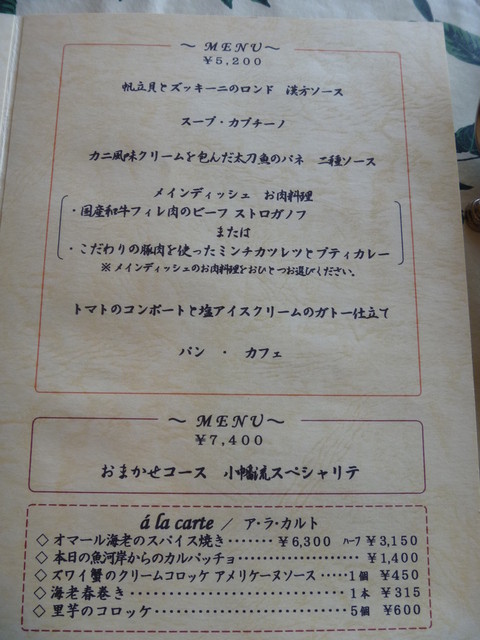 ～ MENU ～
￥5,200
帆立貝とズッキーニのロンド 漢方ソース
スープ・カプチーノ
カニ風味クリームを包んだ太刀魚のパネ 二種ソース
メインディッシュ お肉料理
・国産和牛フィレ肉のビーフ ストロガノフ
または
・こだわりの豚肉を使ったミンチカツレツとプティカレー
※メインディッシュのお肉料理をおひとつお選びください。
トマトのコンポートと塩アイスクリームのガトー仕立て
パン ・ カフェ
～ MENU ～
￥7,400
おまかせコース 小幡流スペシャリテ
á la carte ／ ア・ラ・カルト
◇オマール海老のスパイス焼き ‥‥‥ ￥6,300 ﾊｰﾌ ￥3,150
◇本日の魚河岸からのカルパッチョ ‥‥‥‥‥‥‥‥ ￥1,400
◇ズワイ蟹のクリームコロッケ アメリケーヌソース ‥‥1個 ￥450
◇海老春巻き ‥‥‥‥‥‥‥‥‥‥‥‥ 1本 ￥315
◇里芋のコロッケ ‥‥‥‥‥‥‥‥‥‥ 5個 ￥600